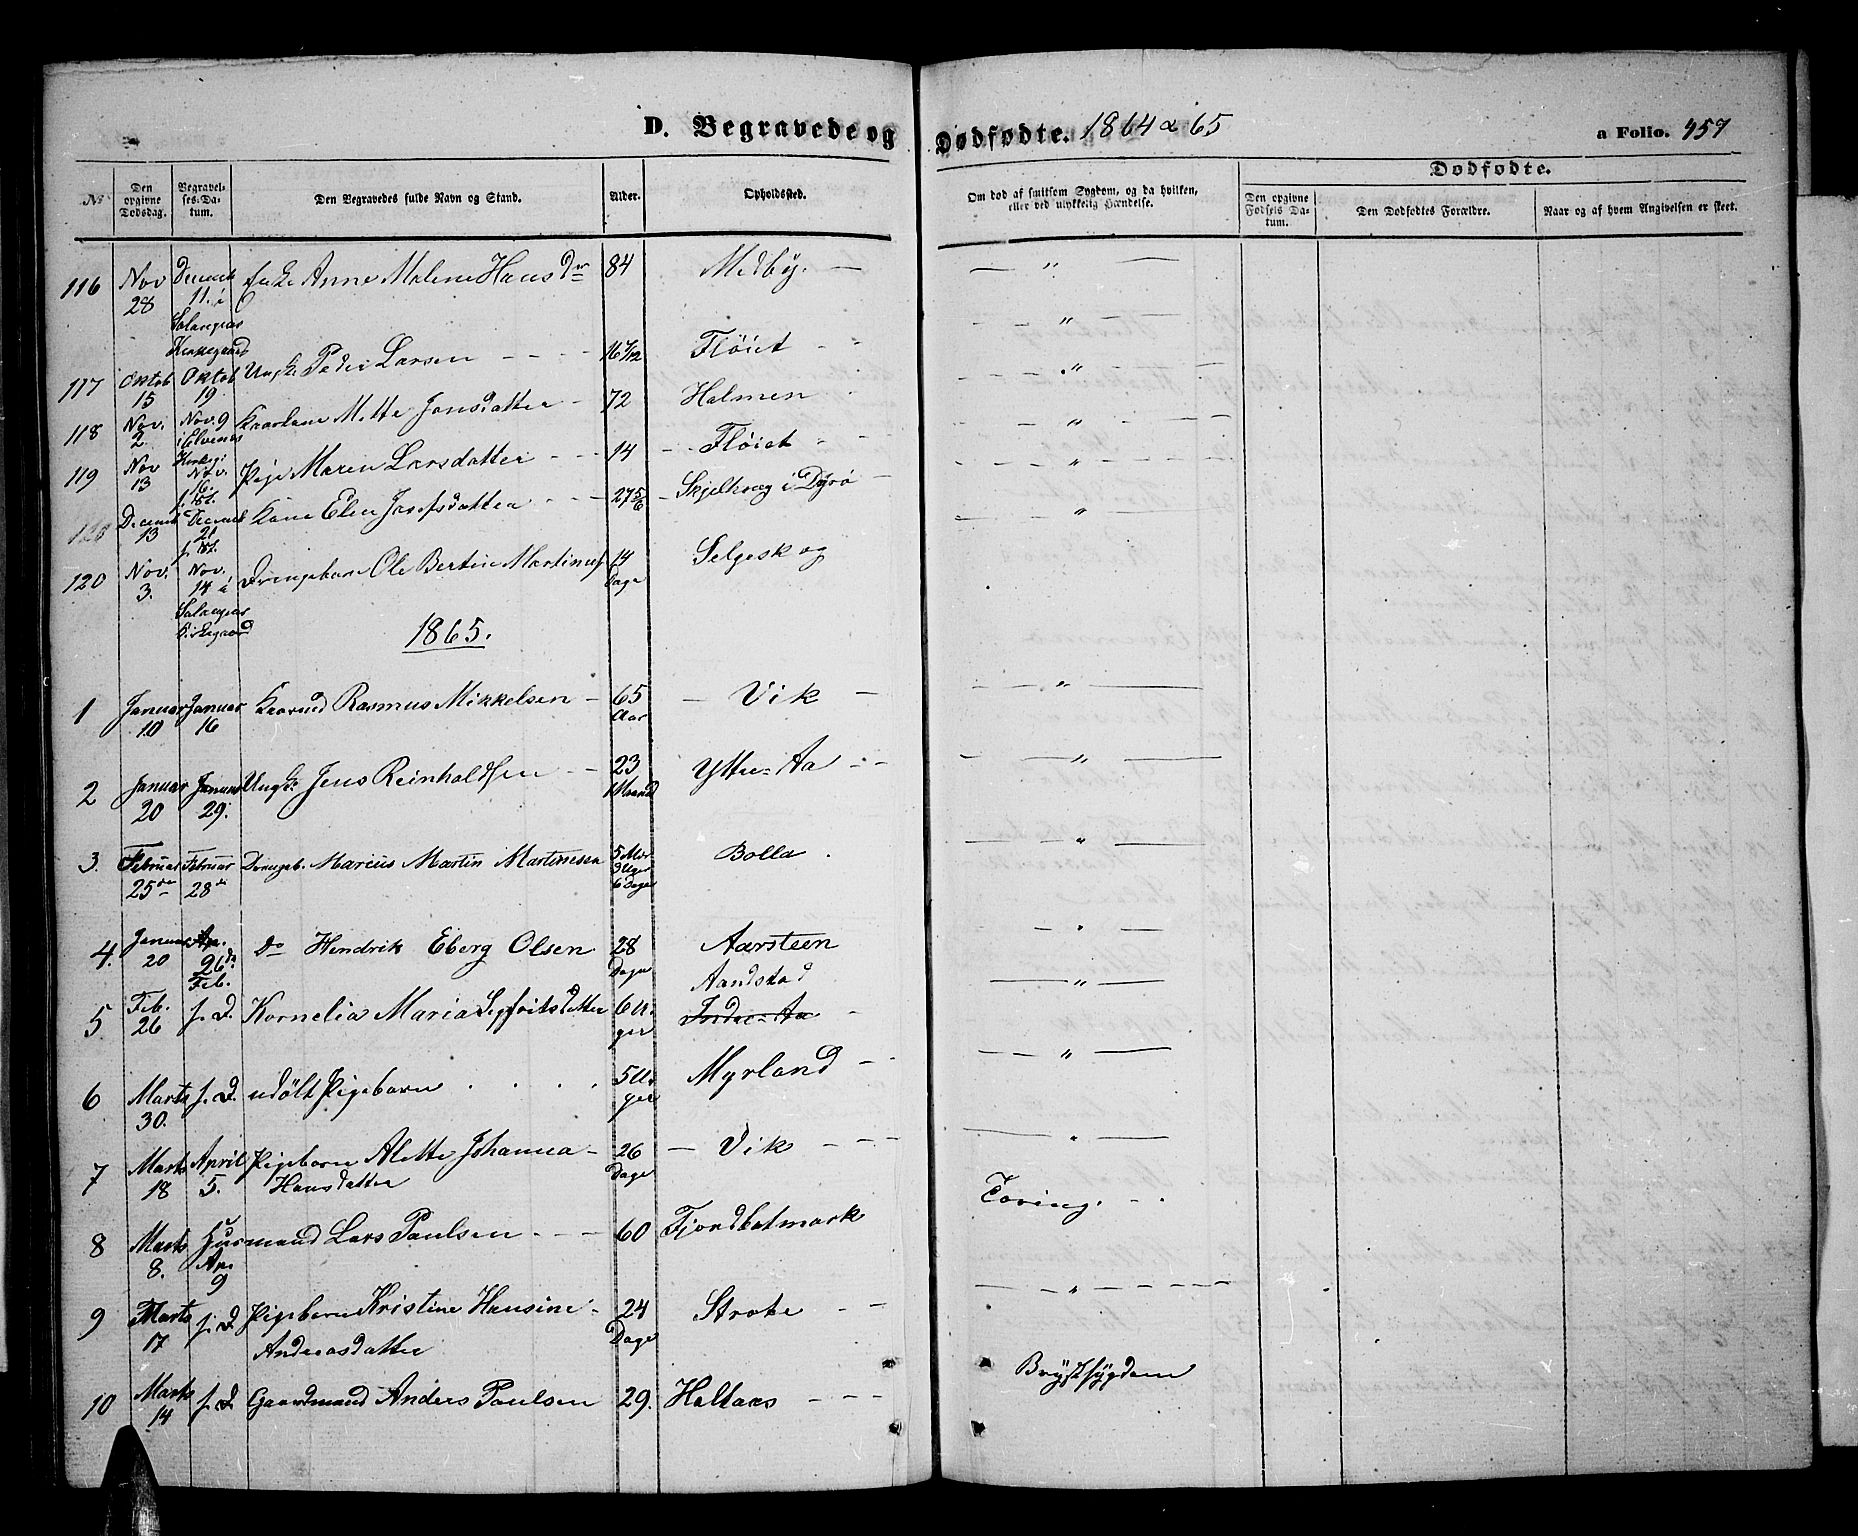 D. Begravede og Dødfødte. 1864 & 65
a Folio. 457
No
Den opgivne Dødsdag.
Begravelses-Datum.
Den Begravedes fulde Navn og Stand.
Alder.
Opholdssted.
Om død af smitsom Sygdom, og da hvilken, eller ved ulykkelig Hændelse.
Dødfødte.
Den opgivne Fødsels Datum.
Den Dødfødtes Forældre.
Naar og af hvem Angivelsen er skeet.
116 Nov 28 Decemb 11. i Salangens Kirkegaard Enke Anne Malene Hansdr 84 Medby. — "
117 Oktob 15 Oktob 19. Ungk Peder Larsen 16 7/12 Fløiet "
118 Nov. 2. Nov. 9 i Elvenes Kirkeg: Kaarkone Mette Jonsdatter 72 Holmen "
119 Nov 13 Nov. 16. Pige Maren Larsdatter 14 Fløiet "
120 Decemb 13 Decemb 21 Kone Elen Josefsdatter 27 5/6 Skjelhvag i Dyrø "
120 Nov. 3. Nov. 14 i Salangens Kirkegaard Drengebarn Ole Bertin Martinus 14 Dage Selgeskog "
1865.
1 Januar 10 Januar 16 Kaarmd Rasmus Mikkelsen 65 Aar Vik "
2 Januar 20 Januar 29. Ungk: Jens Reinholdsen 23 1 Maaned Yttre-Aa "
3. Februar 25de Februar 28de Drengeb. Marius Martin Martinessen 5 Mdr 3 Uger 6 Dage Bolla. "
4. Januar 20 26de Feb. Do Hendrik Eberg Olsen 28 Dage Aarsteen "
5 Feb. 26 s. D. Kornelia Maria Sigfritsdatter 6 Uger Aandstad Indre-Aa "
6 Marts 30. s. D. udøbt Pigebarn 5 Uger Myrland "
7 Marts 18 April 5. Pigebarn Alette Johanna Hansdatter 26 Dage Vik "
8 Marts 8. Ap. 9 Husmand Lars Paulsen 60 Fjordbotmark Tæring.
9 Marts 17 s. D Pigebarn Kristine Hansine Andreasdatter 24 Dage Stroke "
10 Marts 14 s. D Gaardmand Anders Paulsen 29. Holtaas Brystsygdom